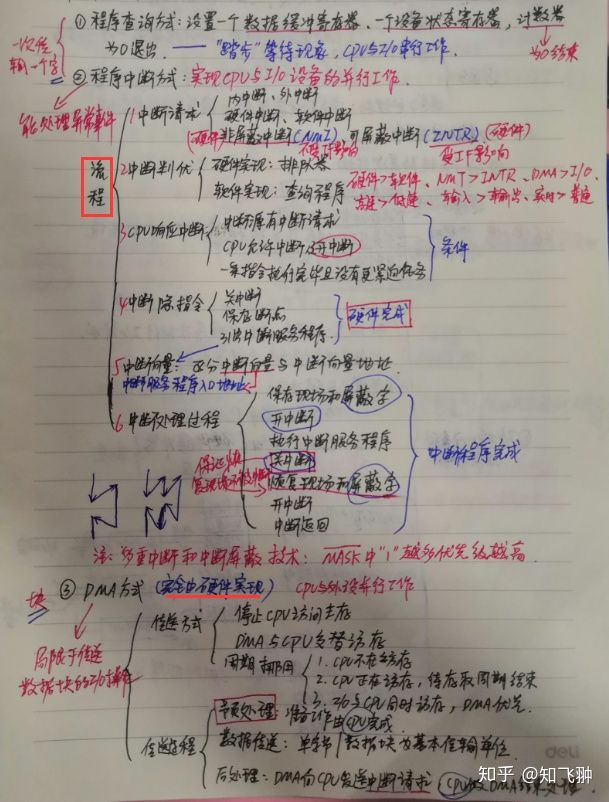 ① 程序查询方式：设置一个数据缓冲寄存器、一个设备状态寄存器，计数器
为0退出. —— "踏步"等待现象，CPU与I/O串行工作.
为0结束
一次传
输一个字
② 程序中断方式：实现CPU与I/O设备的并行工作.
能处理异常事件
流程
1 中断请求
内中断、外中断
硬件中断、软件中断
(硬件) 非屏蔽中断(NMI)，可屏蔽中断(INTR) (硬件)
不受IF影响 受IF影响
2 中断判优
硬件实现：排队器
软件实现：查询程序
硬件>软件、NMI>INTR、DMA>I/O.
高速>低速、输入>输出、实时>普通
3 CPU响应中断
中断源有中断请求
CPU允许中断及开中断
一条指令执行完毕且没有更紧迫任务
条件
4 中断隐指令
关中断
保存断点
引出中断服务程序.
硬件完成
5 中断向量：区分中断向量与中断向量地址.
中断服务程序入口地址
6 中断处理过程
保存现场和屏蔽字
开中断
执行中断服务程序
关中断
恢复现场和屏蔽字
开中断
中断返回
中断程序完成
保证恢
注：多重中断和中断屏蔽技术：MASK中"1"越多优先级越高.
块
③ DMA方式 (完全由硬件实现) CPU与外设并行工作
局限于传送
数据块的I/O操作
传送方式
停止CPU访问主存
DMA与CPU交替访存
周期挪用
1. CPU不在访存
2. CPU正在访存，待存取周期结束
3. I/O与CPU同时访存，DMA优先.
传送过程
预处理：准备工作由CPU完成.
数据传送：单字节/数据块为基本传输单位.
后处理：DMA向CPU发送中断请求，CPU做DMA结束处理.
deli
知乎 @知飞翀